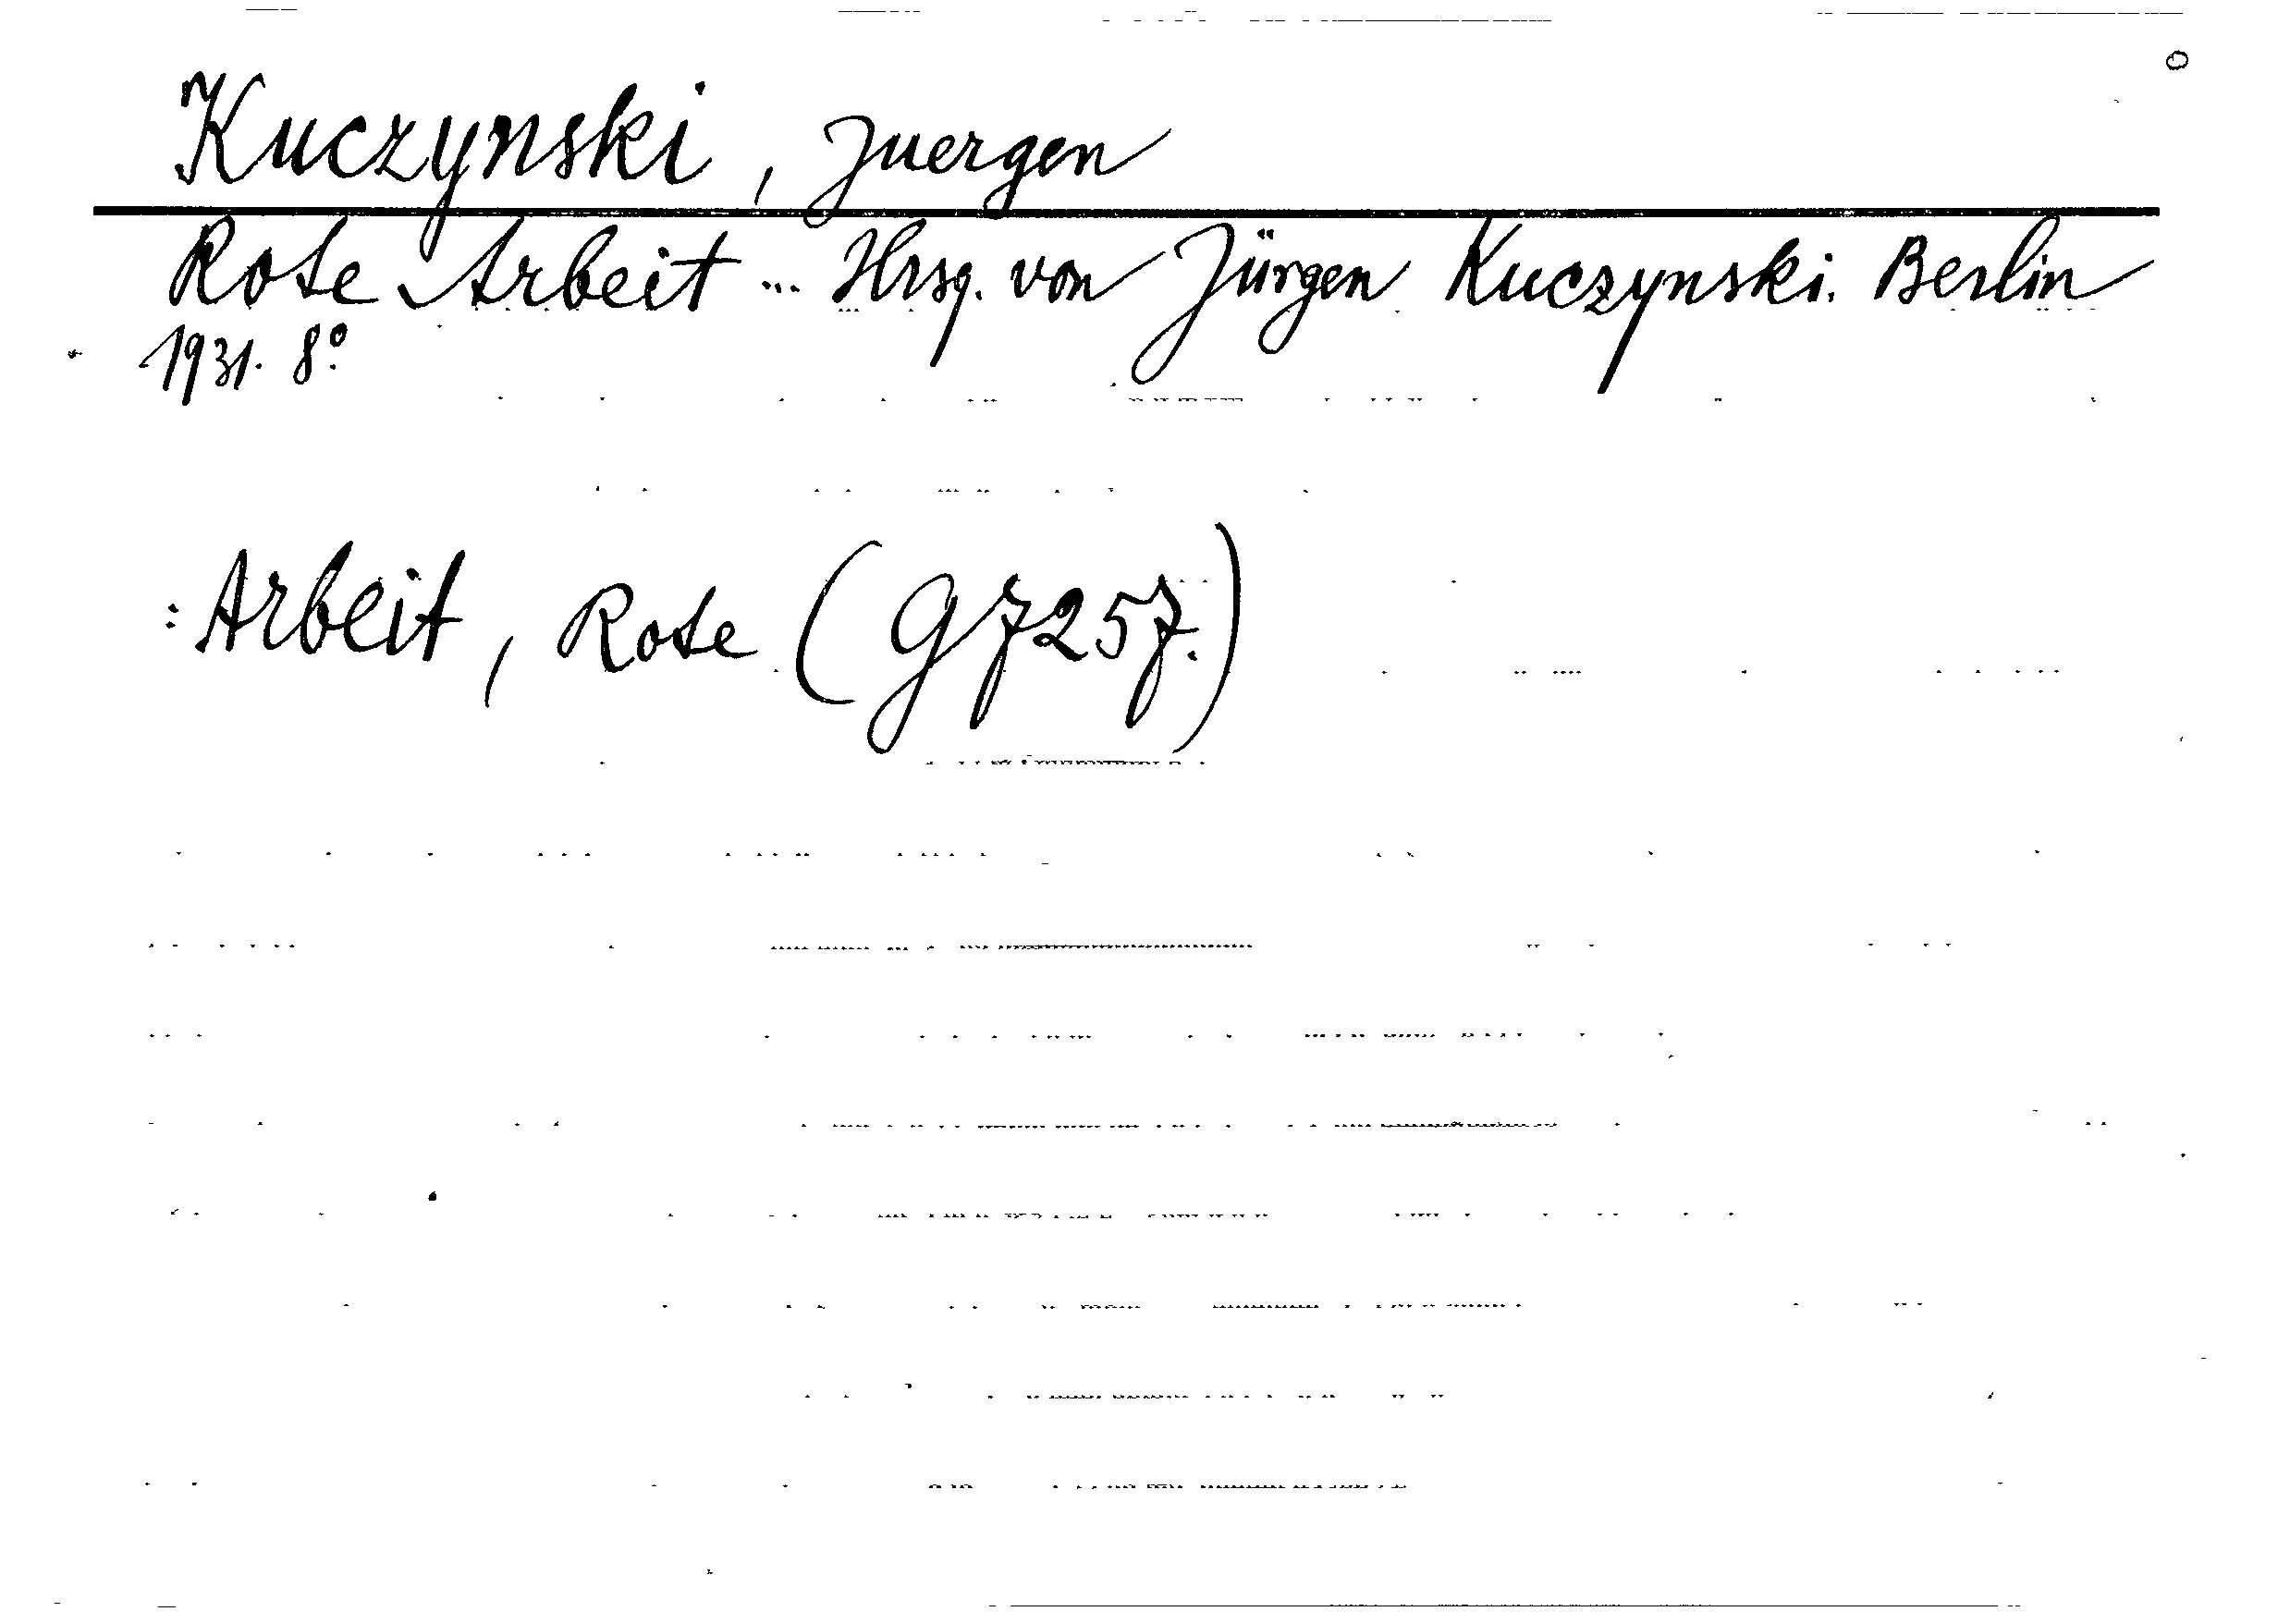 Kuczynski, Juergen
Rote Arbeit ... Hrsg. von Jürgen Kuczynski. Berlin
1931. 8°.
: Arbeit, Rote (G 7257.)